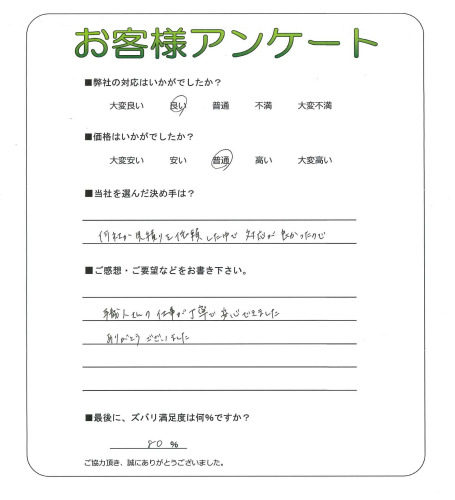 お客様アンケート
■弊社の対応はいかがでしたか？
大変良い 良い 普通 不満 大変不満
■価格はいかがでしたか？
大変安い 安い 普通 高い 大変高い
■当社を選んだ決め手は？
何社か見積りを依頼した中で 対応が良かったので
■ご感想・ご要望などをお書き下さい。
職人さんの仕事が丁寧で安心できました
ありがとうございました
■最後に、ズバリ満足度は何％ですか？
80 %
ご協力頂き、誠にありがとうございました。